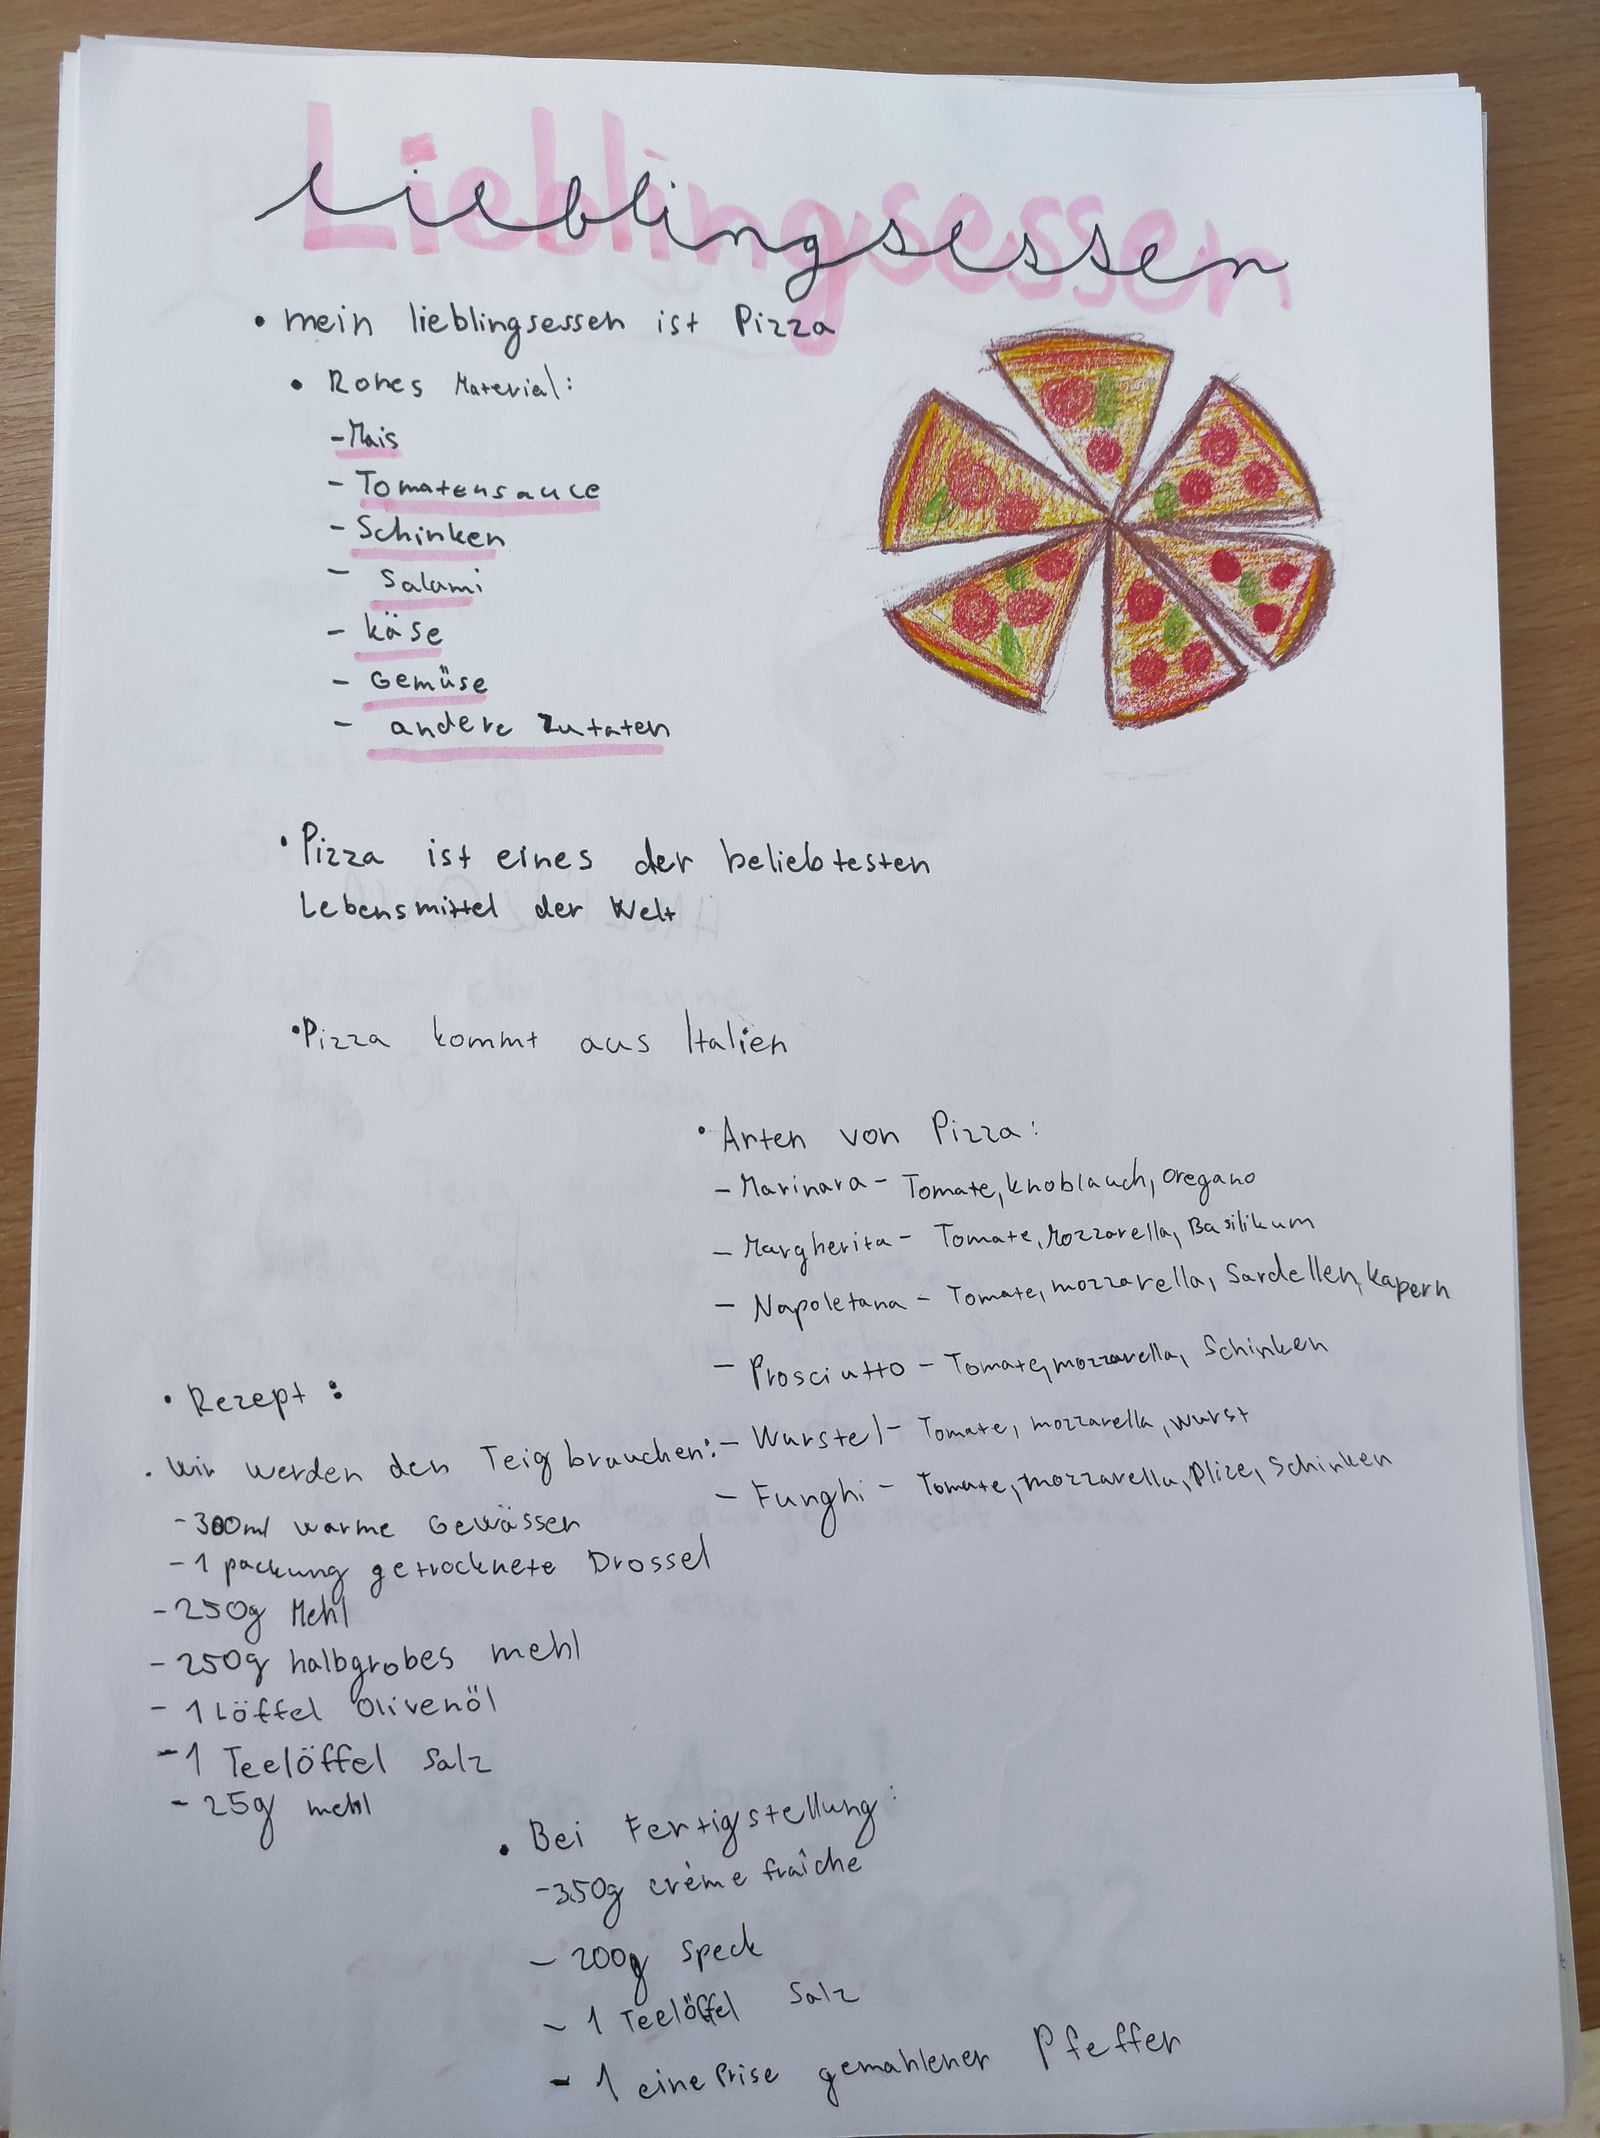 Lieblingsessen
• mein lieblingsessen ist Pizza
• Rohes Material:
-Mais
- Tomatensauce
- Schinken
- Salami
- käse
- Gemüse
- andere Zutaten
• Pizza ist eines der beliebtesten
Lebensmittel der Welt
•Pizza kommt aus Italien
• Arten von Pizza:
- Marinara - Tomate, knoblauch, oregano
- Margherita - Tomate, Mozzarella, Basilikum
- Napoletana - Tomate, mozzarella, Sardellen, kapern
- Prosciutto - Tomate, mozzarella, Schinken
- Wurstel - Tomate, mozzarella, wurst
- Funghi - Tomate, mozzarella, Plize, Schinken
• Rezept:
• Wir werden den Teig brauchen:
-300ml warme Gewässer
-1 packung getrocknete Drossel
-250g Mehl
-250g halbgrobes mehl
- 1 Löffel Olivenöl
-1 Teelöffel Salz
- 25g mehl
• Bei Fertigstellung:
-350g crème fraîche
- 200g speck
- 1 Teelöffel Salz
- 1 eine Prise gemahlener Pfeffer